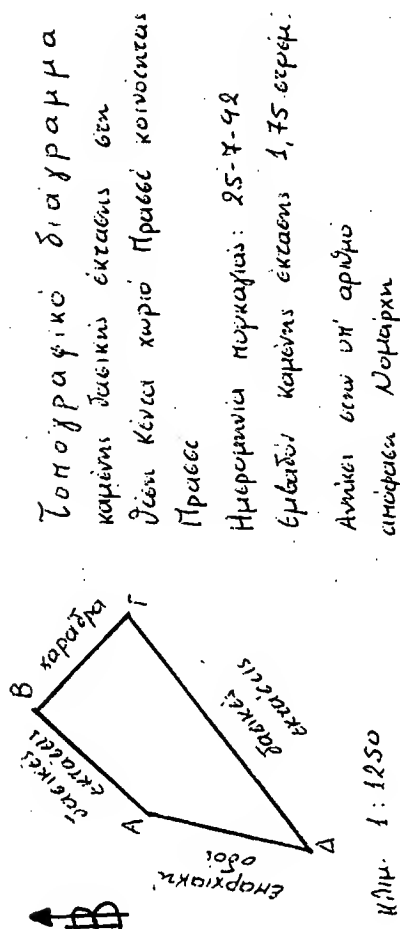 Τοπογραφικό διάγραμμα
καμένης δασικής έκτασης στη
θέση Κένεα χωριό Πρασσέ κοινότητας
Πρασσέ
Ημερομηνία πυρκαγιάς: 25-7-92
Εμβαδόν καμένης έκτασης 1,75 στρέμ.
Ανήκει στην υπ' αριθμό
απόφαση Νομάρχη
Β
Β
χαράδρα
Γ
δασικές
εκτάσεις
Α
δασικές
εκτάσεις
επαρχιακή
οδοί
Δ
Κλιμ. 1:1250